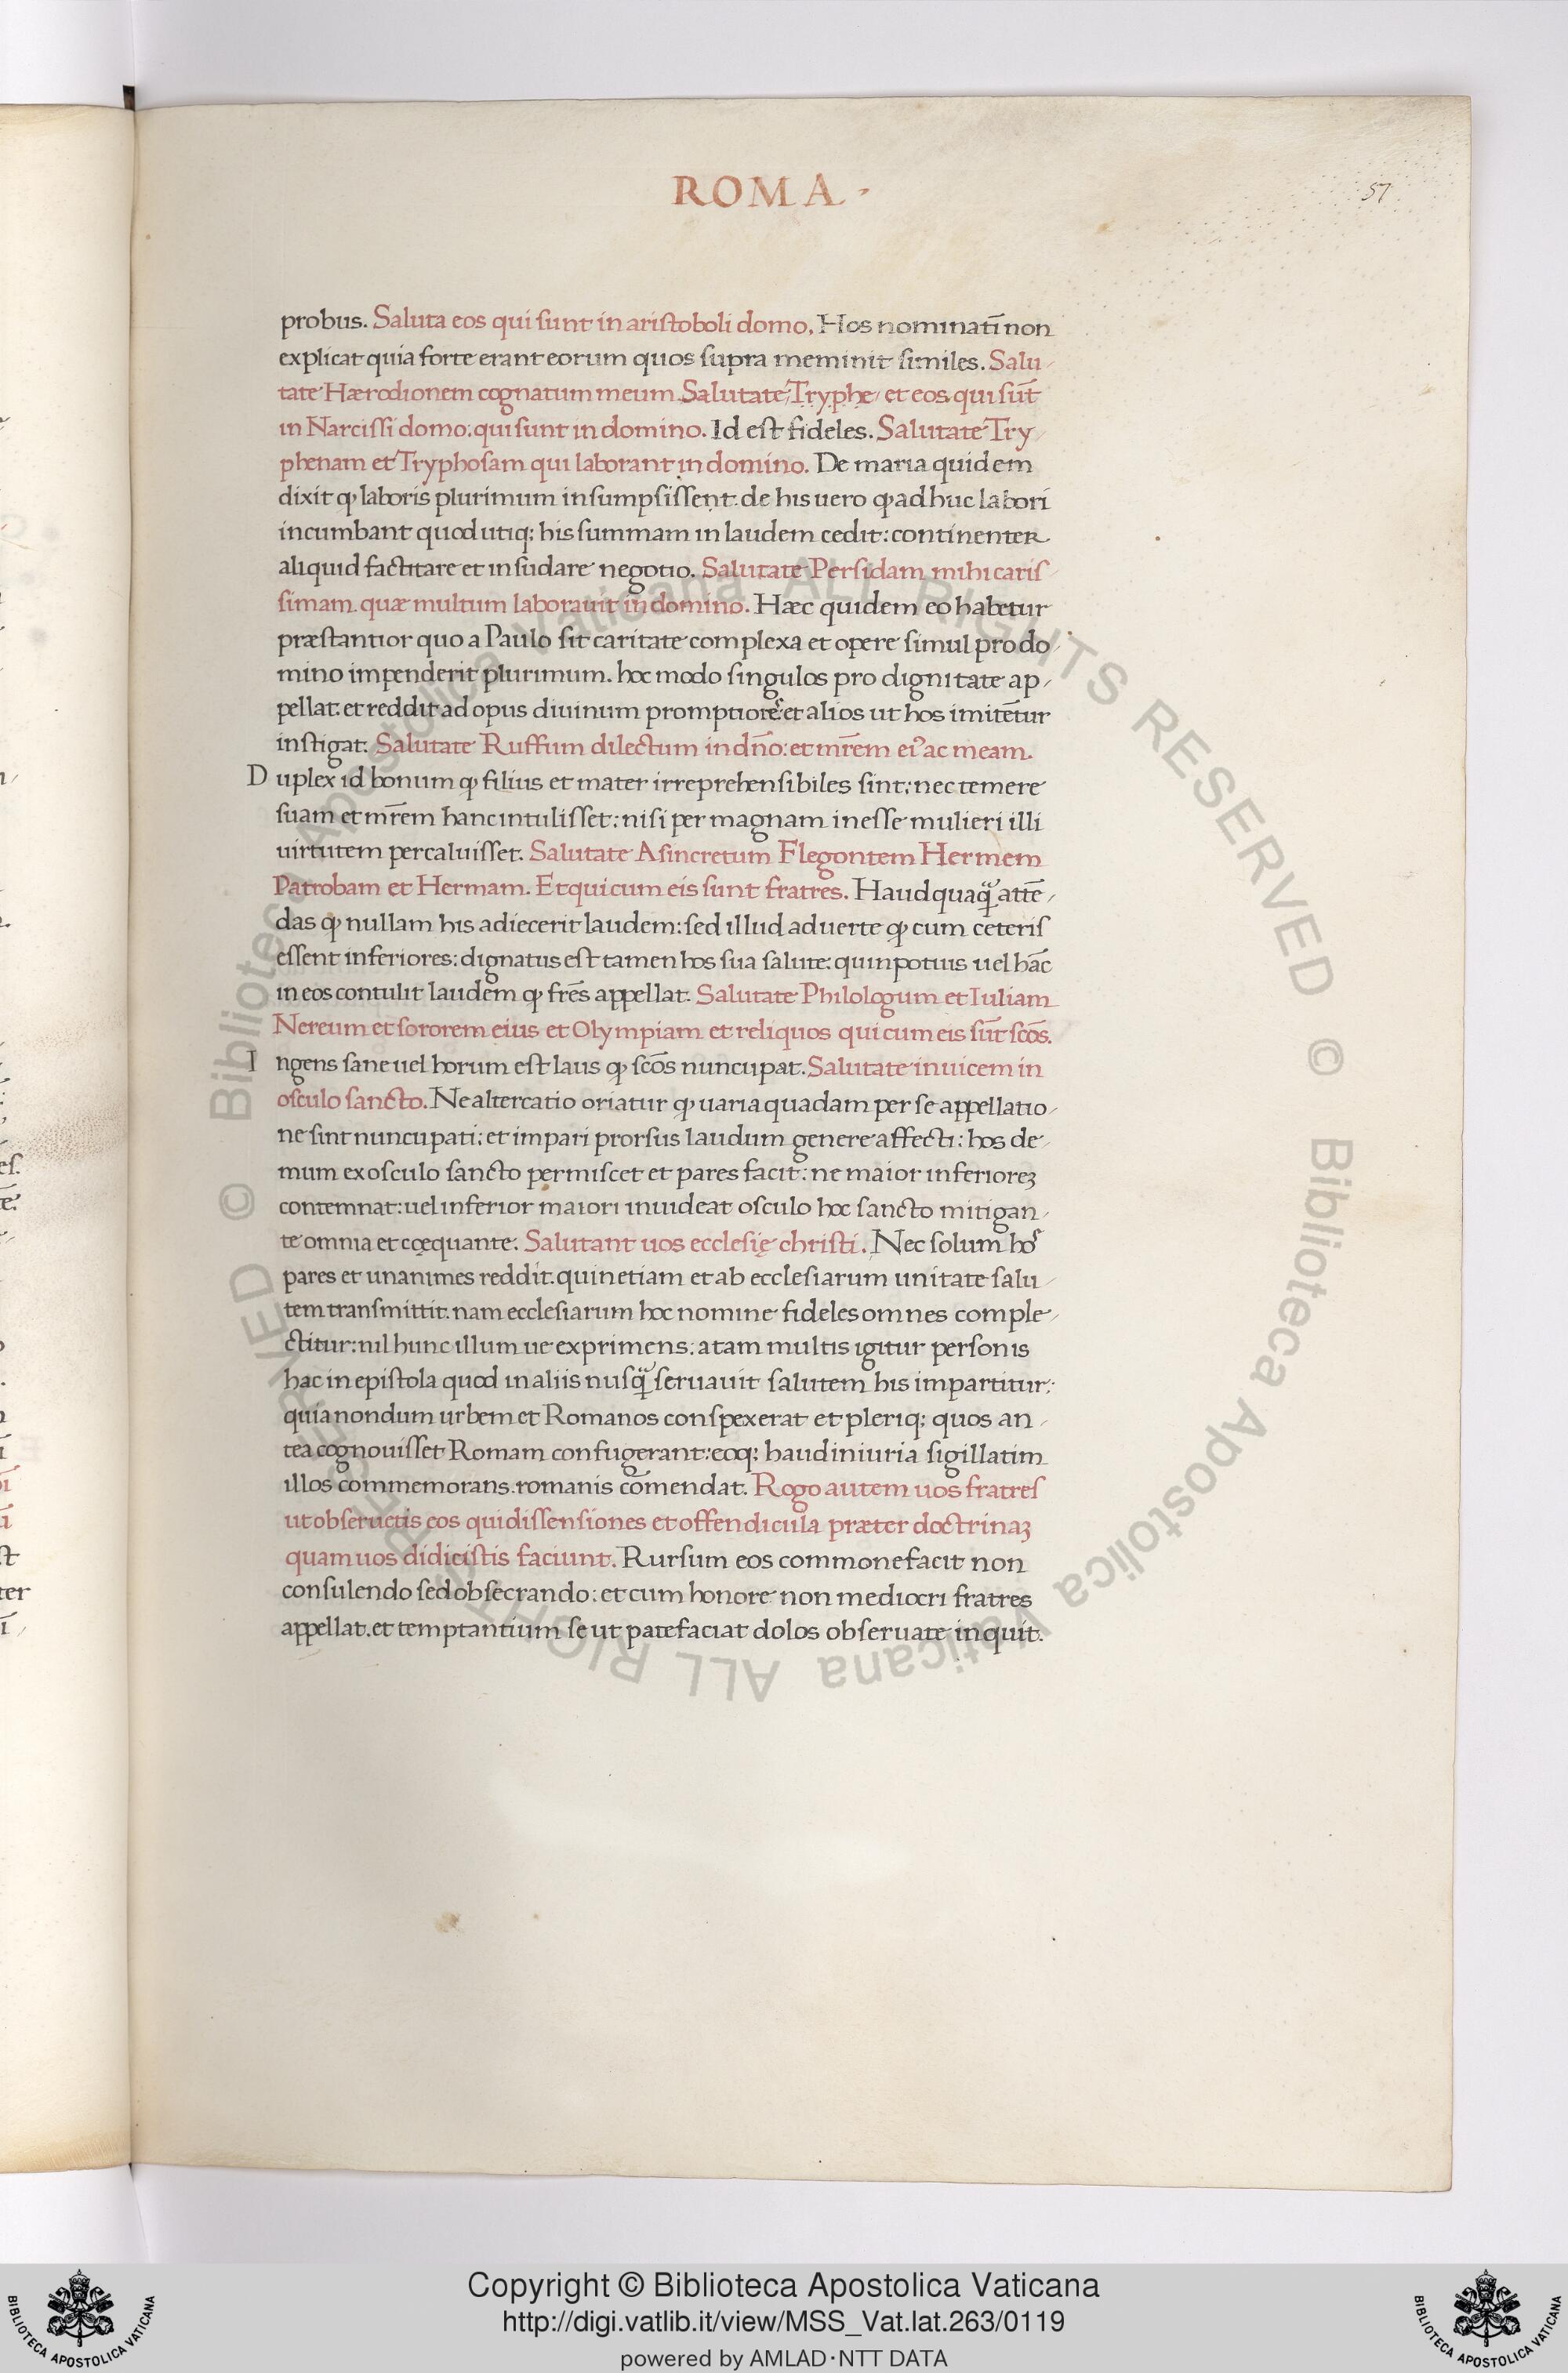 ROMA
57
probus. Saluta eos qui sunt in aristoboli domo. Hos nominatī non
explicat quia forte erant eorum quos supra meminit similes. Salu-
tate Hærodionem cognatum meum. Salutate Tryphe et eos qui sūt
in Narcissi domo: qui sunt in domino. Id est fideles. Salutate Try
phenam et Tryphosam qui laborant in domino. De maria quidem
dixit ꝙ laboris plurimum insumpsissent. de his uero ꝙ ad huc labori
incumbant quod utiq; his summam in laudem cedit: continenter
aliquid factitare et insudare negotio. Salutate Persidam mihi caris-
simam. quæ multum laborauit in domino. Hæc quidem eo habetur
præstantior quo a Paulo sit caritate complexa et opere simul pro do-
mino impenderit plurimum. hoc modo singulos pro dignitate ap-
pellat: et reddit ad opus diuinum promptiores: et alios ut hos imitētur
instigat. Salutate Ruffum dilectum in dn̄o: et mr̄em ei᾽ ac meam.
Duplex id bonum ꝙ filius et mater irreprehensibiles sint: nec temere
suam et mr̄em hanc intulisset: nisi per magnam inesse mulieri illi
uirtutem percaluisset. Salutate Asincretum Flegontem Hermem
Patrobam et Hermam. Et qui cum eis sunt fratres. Haud quaꝗ̃ attē-
das ꝙ nullam his adiecerit laudem: sed illud aduerte ꝙ cum ceteris
essent inferiores: dignatus est tamen hos sua salute: quinpotuis uel hāc
in eos contulit laudem ꝙ frēs appellat. Salutate Philologum et Iuliam
Nereum et sororem eius et Olympiam et reliquos qui cum eis sūt scōs.
Ingens sane uel horum est laus ꝙ scōs nuncupat. Salutate inuicem in
osculo sancto. Ne altercatio oriatur ꝙ uaria quadam per se appellatio-
ne sint nuncupati: et impari prorsus laudum genere affecti: hos de-
mum ex osculo sancto permiscet et pares facit: ne maior inferioreꝫ
contemnat: uel inferior maiori inuideat osculo hoc sancto mitigan-
te omnia et coequante. Salutant uos ecclesię christi. Nec solum hos
pares et unanimes reddit. quin etiam et ab ecclesiarum unitate salu-
tem transmittit. nam ecclesiarum hoc nomine fideles omnes comple-
ctitur: nil hunc illum ue exprimens: a tam multis igitur personis
hac in epistola quod in aliis nusꝗ̃ seruauit salutem his impartitur:
quia nondum urbem et Romanos conspexerat et pleriq; quos an-
tea cognouisset Romam confugerant: eoq; haud iniuria sigillatim
illos commemorans. romanis cōmendat. Rogo autem uos fratres
ut obseruetis eos qui dissensiones et offendicula præter doctrinaꝫ
quam uos didicistis faciunt. Rursum eos commonefacit non
consulendo sed obsecrando: et cum honore non mediocri fratres
appellat. et temptantium se ut patefaciat dolos obseruate inquit.
© Biblioteca Apostolica Vaticana ALL RIGHTS RESERVED
© Biblioteca Apostolica Vaticana ALL RIGHTS RESERVED
Copyright © Biblioteca Apostolica Vaticana
http://digi.vatlib.it/view/MSS_Vat.lat.263/0119
powered by AMLAD·NTT DATA
BIBLIOTECA APOSTOLICA VATICANA
BIBLIOTECA APOSTOLICA VATICANA